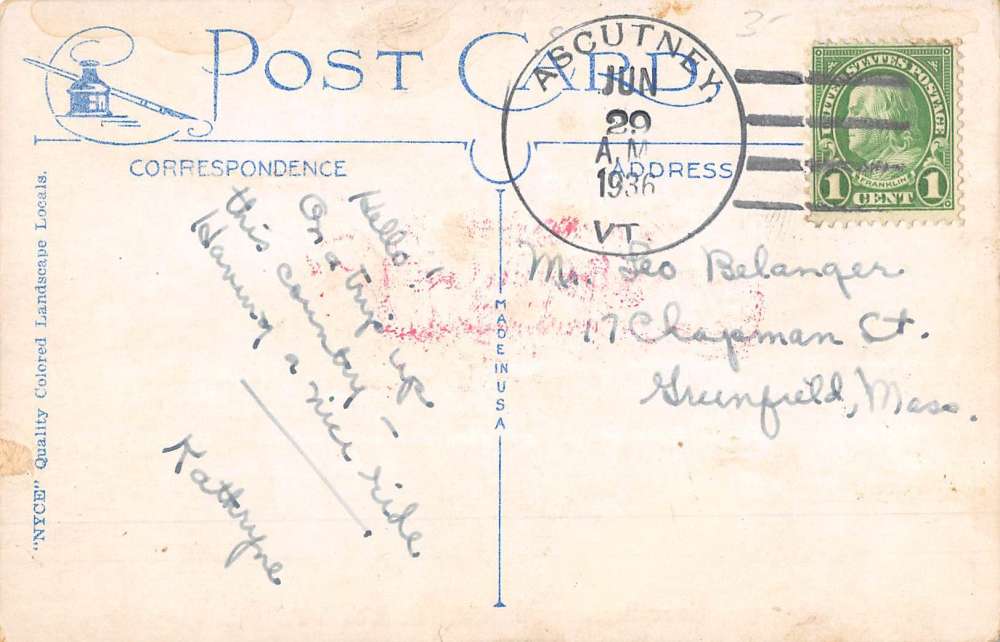 POST CARD
ASCUTNEY.
JUN
29
A.M.
1936
VT.
UNITED STATES POSTAGE
FRANKLIN
1 CENT 1
CORRESPONDENCE
ADDRESS
Hello!
On a trip up
this country –
Having a nice ride.
Kathryne
Mr. Leo Belanger
17 Chapman Ct.
Greenfield, Mass.
MADE IN USA
"NYCE" Quality Colored Landscape Locals.